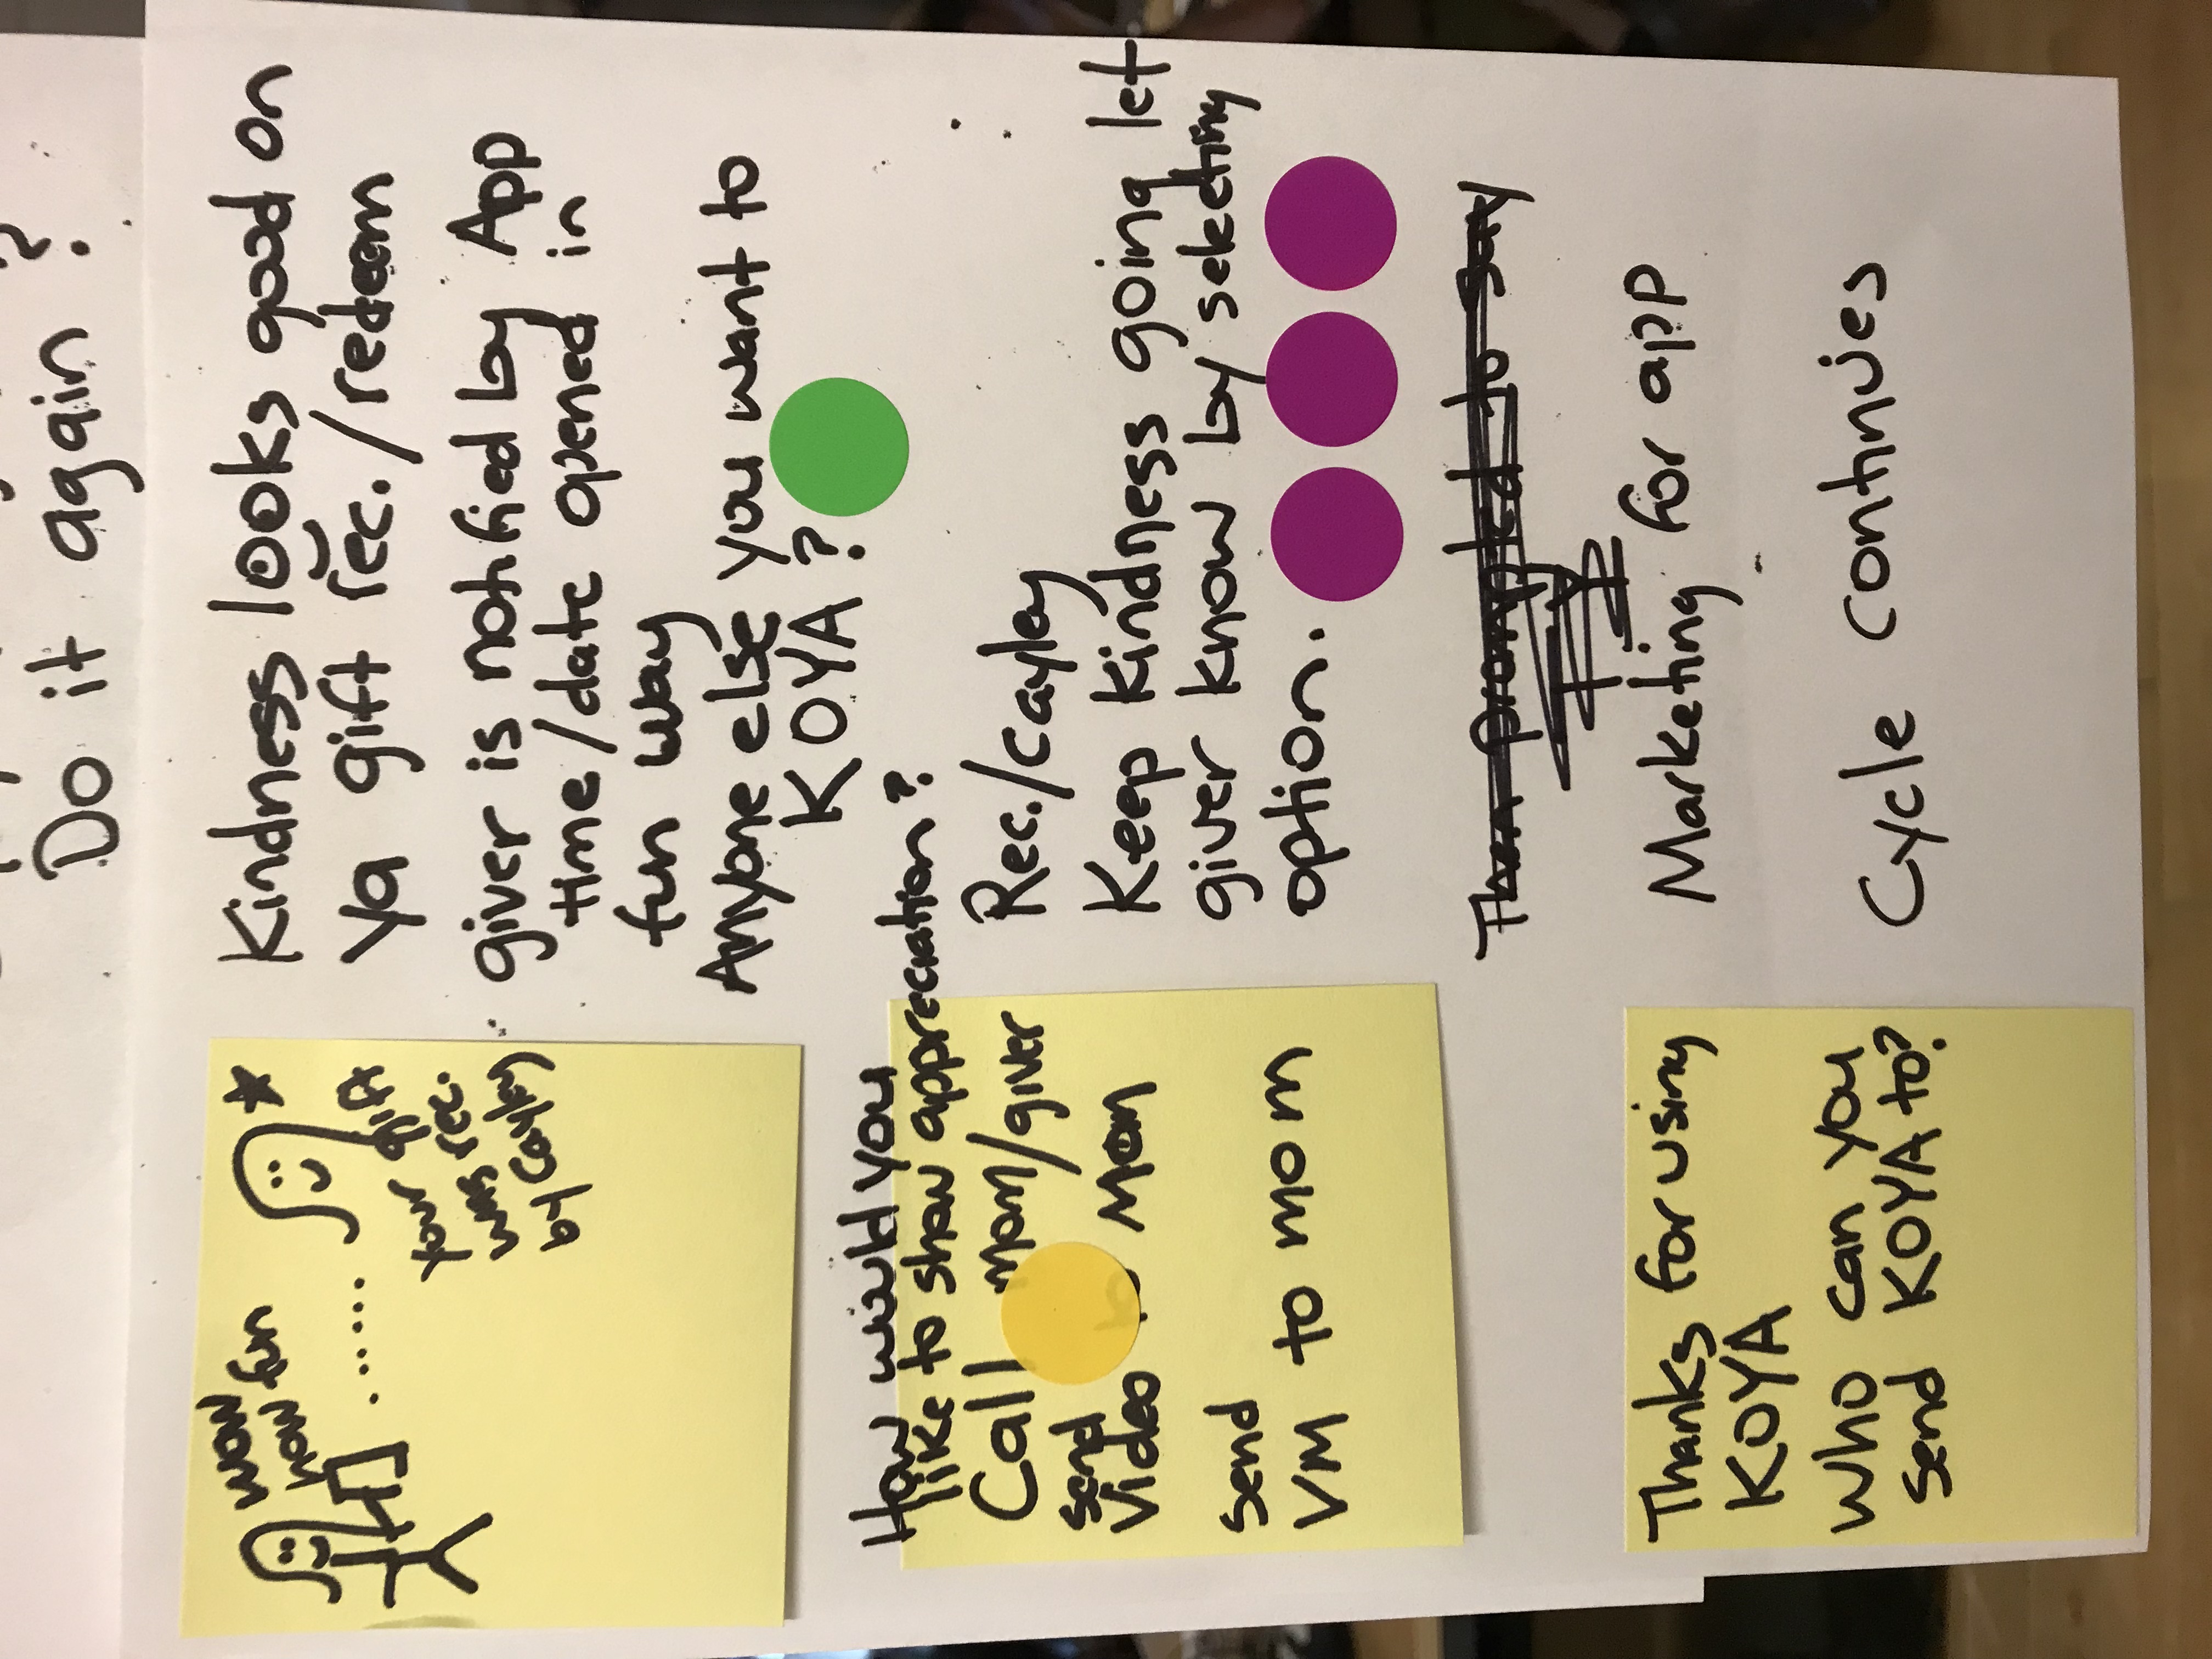 Do it again ?
wow
how fun
your gift
was rec.
by Cayley
Kindness looks good on
ya gift rec./redeem
giver is notified by App
time/date opened in
fun way
Anyone else you want to
KOYA ?
How would you
like to show appreciation ?
Call mom/giver
send
Video to Mom
Send
VM to mom
Rec./Cayley
Keep Kindness going let
giver know by selecting
option.
Then prompted to say
TY
Thanks for using
KOYA
Who can you
send KOYA to?
Marketing for app
Cycle continues